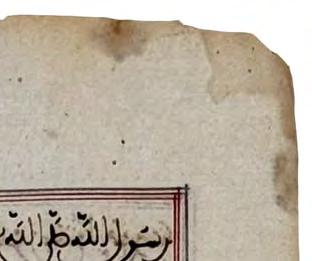 رسول الله صلى الله